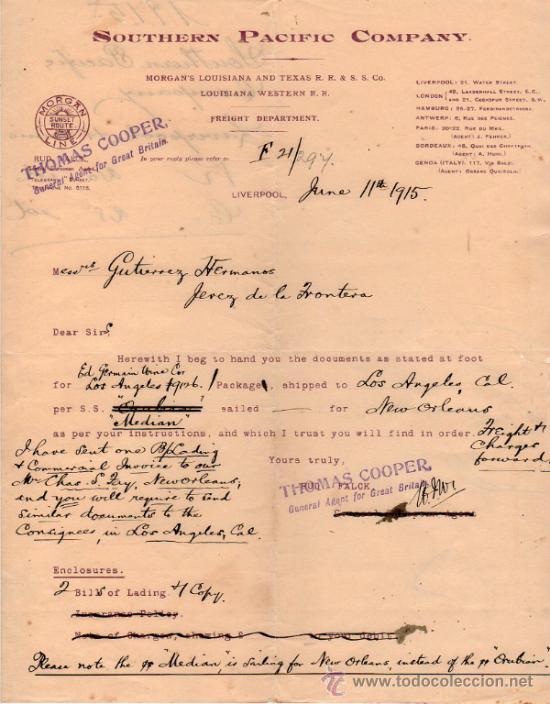 SOUTHERN PACIFIC COMPANY.
MORGAN'S LOUISIANA AND TEXAS R. R. & S. S. Co.
LOUISIANA WESTERN R. R.
FREIGHT DEPARTMENT.
MORGAN LINE
SUNSET ROUTE
LIVERPOOL: 21, WATER STREET.
LONDON 49, LEADENHALL STREET, E.C.
AND 21, COCKSPUR STREET, S.W.
HAMBURG: 25-27, FERDINANDSTRASSE.
ANTWERP: 6, RUE DES PEIGNES.
PARIS: 20-22, RUE DU
BORDEAUX: 48, QUAI DES CHARTRONS
GENOA (ITALY), 117, VIA BALBI
THOMAS COOPER,
General Agent for Great Britain.
In your reply please refer to F 21/294.
LIVERPOOL, June 11th 1915.
Messrs Gutierrez Hermanos
Jerez de la Frontera
Dear Sirs
Herewith I beg to hand you the documents as stated at foot
Ed Germain Wine Co
for Los Angeles 1 Package, shipped to Los Angeles, Cal.
per S.S. "Orubian" sailed — for New Orleans
"Median"
as per your instructions, and which I trust you will find in order. Freight & Charges forward.
Yours truly,
THOMAS COOPER,
General Agent for Great Britain.
RUD. FALCK,
I have sent one B/Lading
& Commercial Invoice to our
Mr Chas. S. Fay, New Orleans,
and you will require to send
similar documents to the
Consignees, in Los Angeles, Cal.
Enclosures.
2 Bills of Lading & 1 Copy.
Insurance Policy.
Please note the SS "Median", is sailing for New Orleans, instead of the SS "Orubian".
www.todocoleccion.net